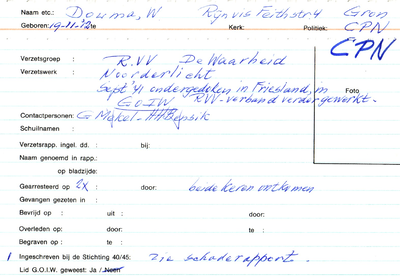 Naam etc.: Douma, W Rijnvis Feithstr 4 Gron
Geboren: 19-11-12 te Kerk: Politiek: CPN
CPN
Verzetsgroep : R.VV De Waarheid
Verzetswerk : Noorderlicht
Sept '41 ondergedoken in Friesland, in Foto
G.O.I.W R.VV-verband verder gewerkt.
Contactpersonen: G Meckel - HHBijsik
Schuilnaam :
Verzetsrapp. ingel. dd. : bij:
Naam genoemd in rapp.:
op bladzijde:
Gearresteerd op 2x : door: beide keren ontkomen
Gevangen gezeten in :
Bevrijd op : uit : door:
Overleden op: door: te :
Begraven op : te :
1 Ingeschreven bij de Stichting 40/45: zie schaderapport.
Lid G.O.I.W. geweest: Ja / Neen